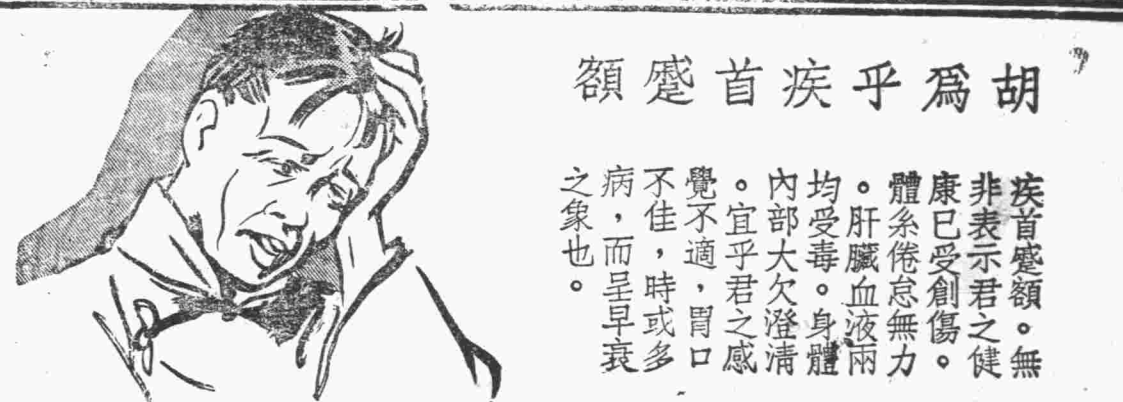 胡爲乎疾首蹙額
疾首蹙額。無
非表示君之健
康已受創傷。
體系倦怠無力
。肝臟血液兩
均受毒。身體
內部大欠澄淸
。宜乎君之感
覺不適，胃口
不佳，時或多
病，而呈早衰
之象也。